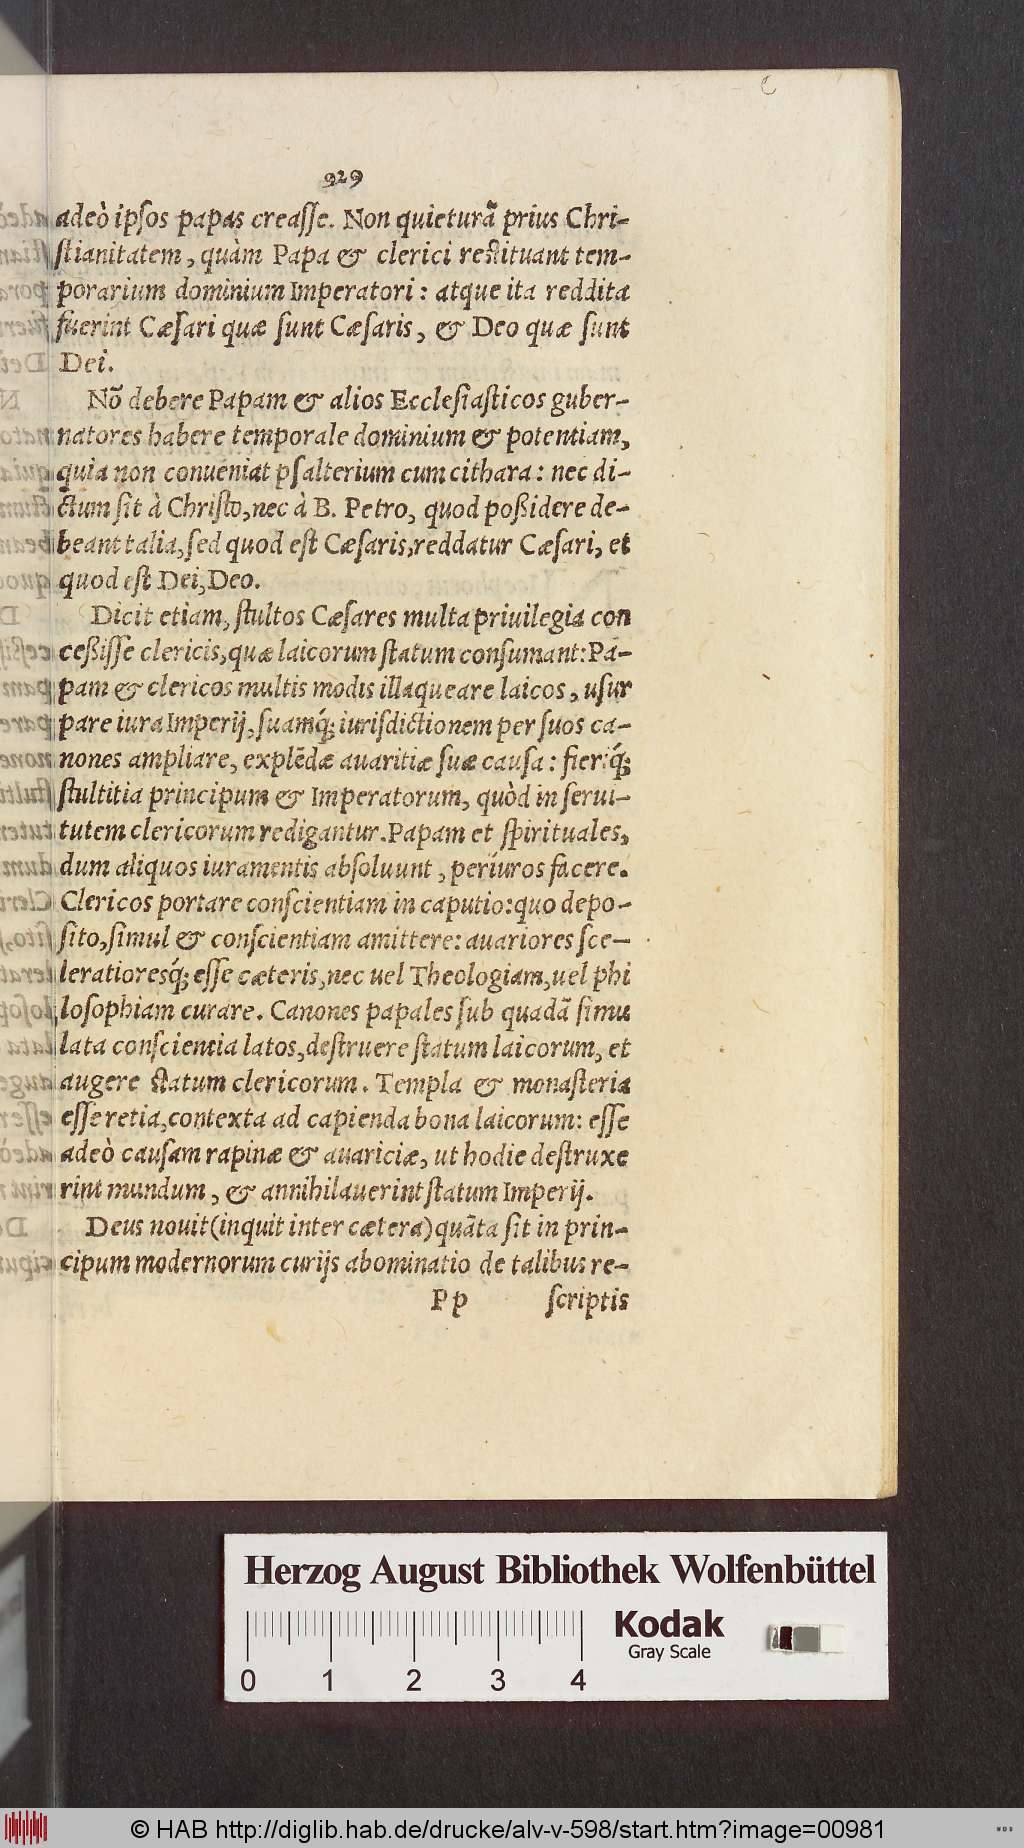 929
adeò ipſos papas creaſſe. Non quieturã prius Chri-
ſtianitatem, quàm Papa & clerici reſtituant tem-
porarium dominium Imperatori: atque ita reddita
fuerint Cæſari quæ ſunt Cæſaris, & Deo quæ ſunt
Dei.
Nõ debere Papam & alios Eccleſiaſticos guber-
natores habere temporale dominium & potentiam,
quia non conueniat pſalterium cum cithara: nec di-
ctum ſit à Chriſto, nec à B. Petro, quod poßidere de-
beant talia, ſed quod eſt Cæſaris, reddatur Cæſari, et
quod eſt Dei, Deo.
Dicit etiam, ſtultos Cæſares multa priuilegia con
ceßiſſe clericis, quæ laicorum ſtatum conſumant: Pa-
pam & clericos multis modis illaqueare laicos, uſur
pare iura Imperij, ſuamq́; iuriſdictionem per ſuos ca-
nones ampliare, explẽdæ auaritiæ ſuæ cauſa: fieriq́;
ſtultitia principum & Imperatorum, quòd in ſerui-
tutem clericorum redigantur. Papam et ſpirituales,
dum aliquos iuramentis abſoluunt, periuros facere.
Clericos portare conſcientiam in caputio: quo depo-
ſito, ſimul & conſcientiam amittere: auariores ſce-
leratioresq́; eſſe cæteris, nec uel Theologiam, uel phi
loſophiam curare. Canones papales ſub quadã ſimu
lata conſcientia latos, deſtruere ſtatum laicorum, et
augere ſtatum clericorum. Templa & monaſteria
eſſe retia, contexta ad capienda bona laicorum: eſſe
adeò cauſam rapinæ & auariciæ, ut hodie deſtruxe
rint mundum, & annihilauerint ſtatum Imperij.
Deus nouit (inquit inter cætera) quãta ſit in prin-
cipum modernorum curijs abominatio de talibus re-
Pp ſcriptis
Herzog August Bibliothek Wolfenbüttel
Kodak
Gray Scale
0 1 2 3 4
© HAB http://diglib.hab.de/drucke/alv-v-598/start.htm?image=00981